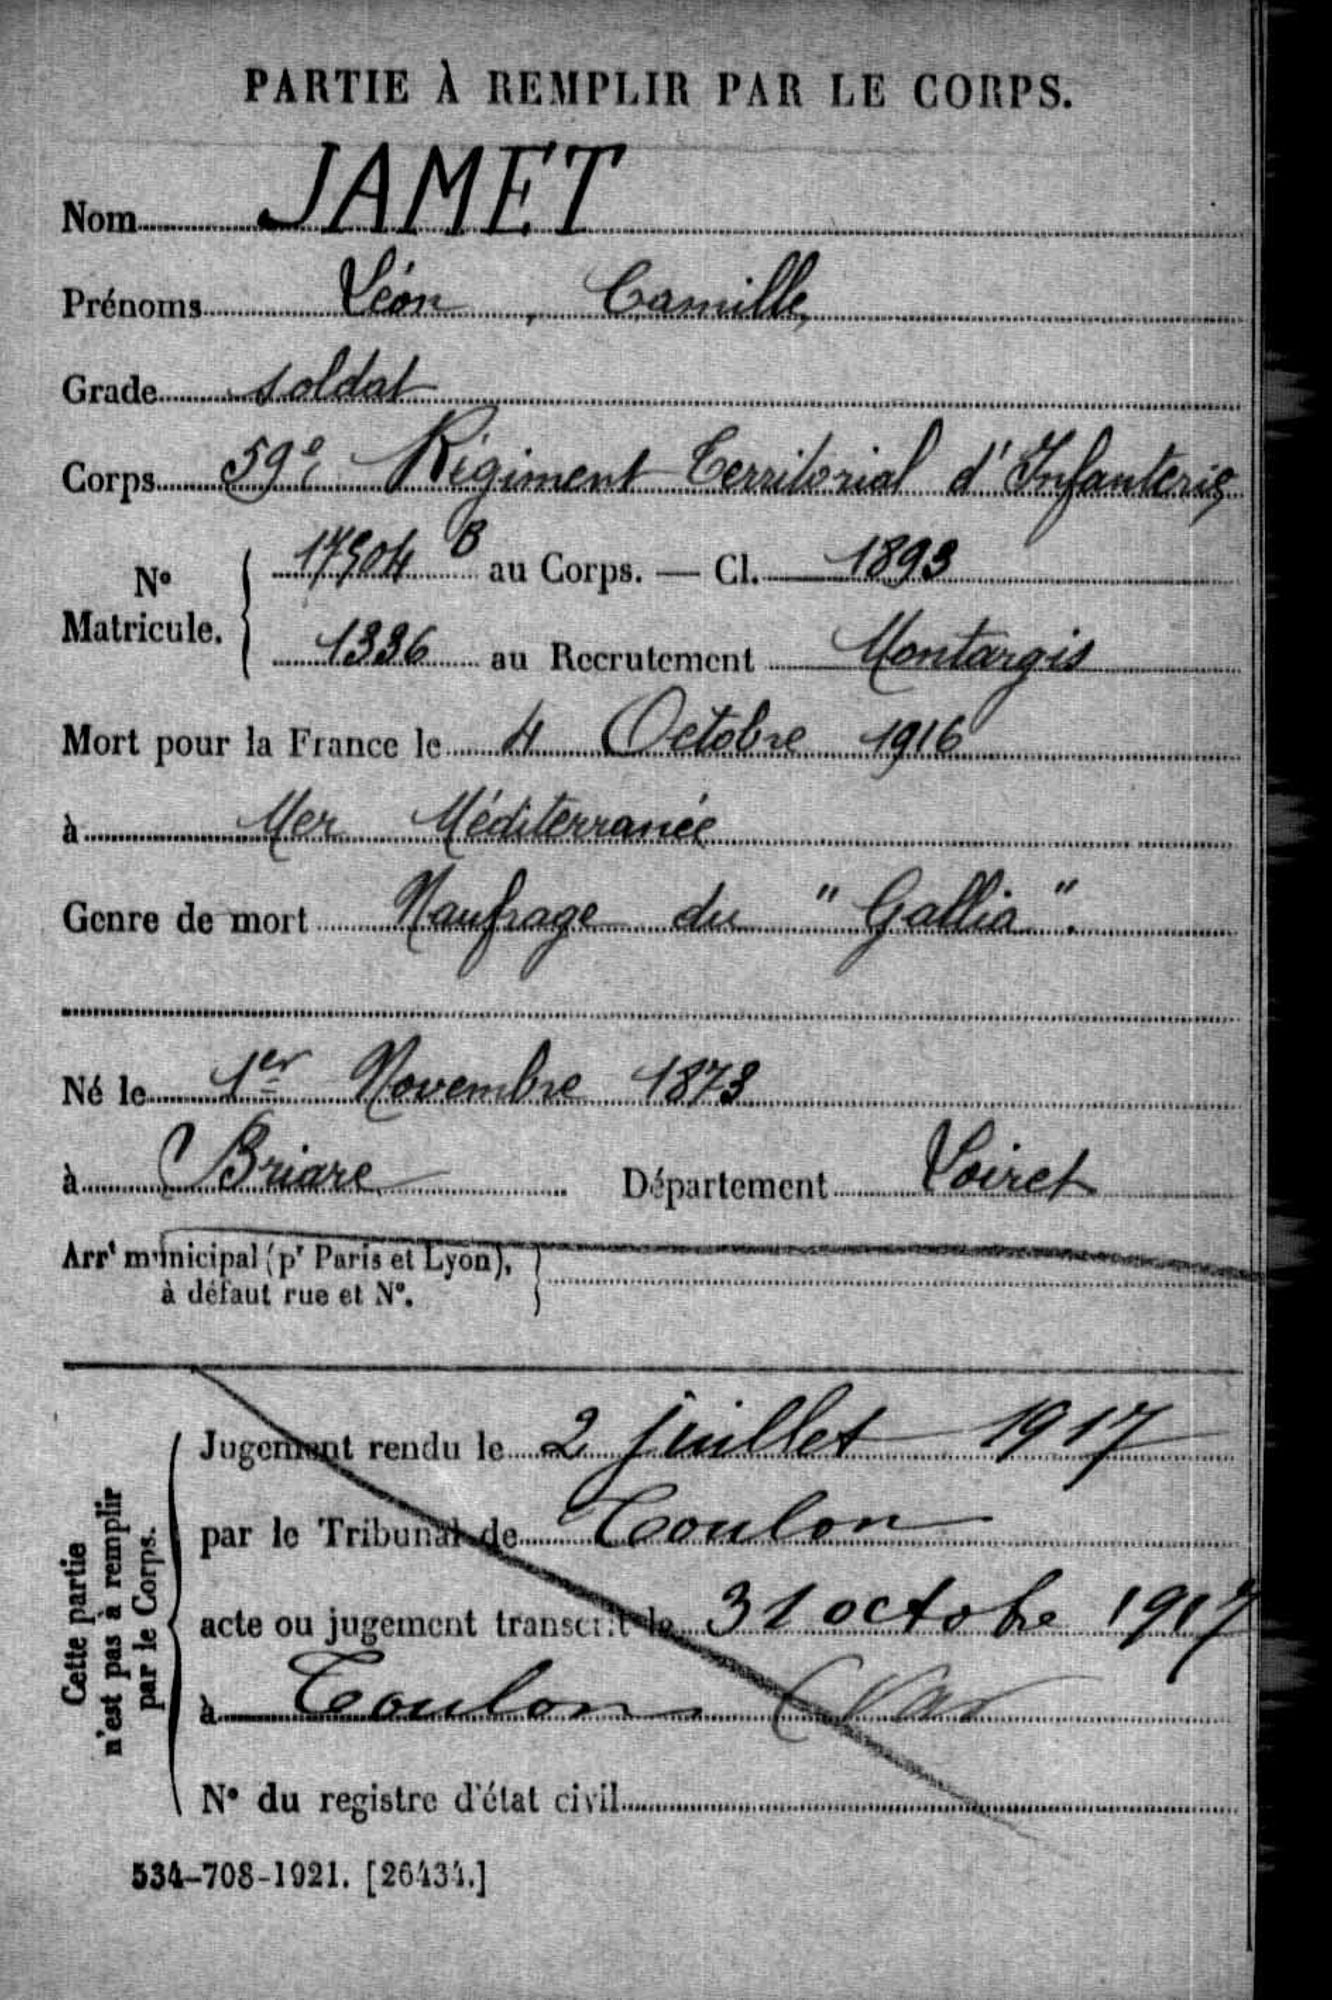 PARTIE À REMPLIR PAR LE CORPS.
Nom JAMET
Prénoms Léon, Camille,
Grade soldat
Corps 59e Régiment Territorial d'Infanterie
N° Matricule. 17504 B au Corps. — Cl. 1893
1336 au Recrutement Montargis
Mort pour la France le 4 Octobre 1916
à Mer Méditerranée
Genre de mort Naufrage du "Gallia".
Né le 1er Novembre 1873
à Briare Département Loiret
Arrt municipal (pr Paris et Lyon),
à défaut rue et N°.
Cette partie
n'est pas à remplir
par le Corps.
Jugement rendu le 2 juillet 1917
par le Tribunal de Toulon
acte ou jugement transcrit le 31 octobre 1917
à Toulon (Var
N° du registre d'état civil
534-708-1921. [26434.]